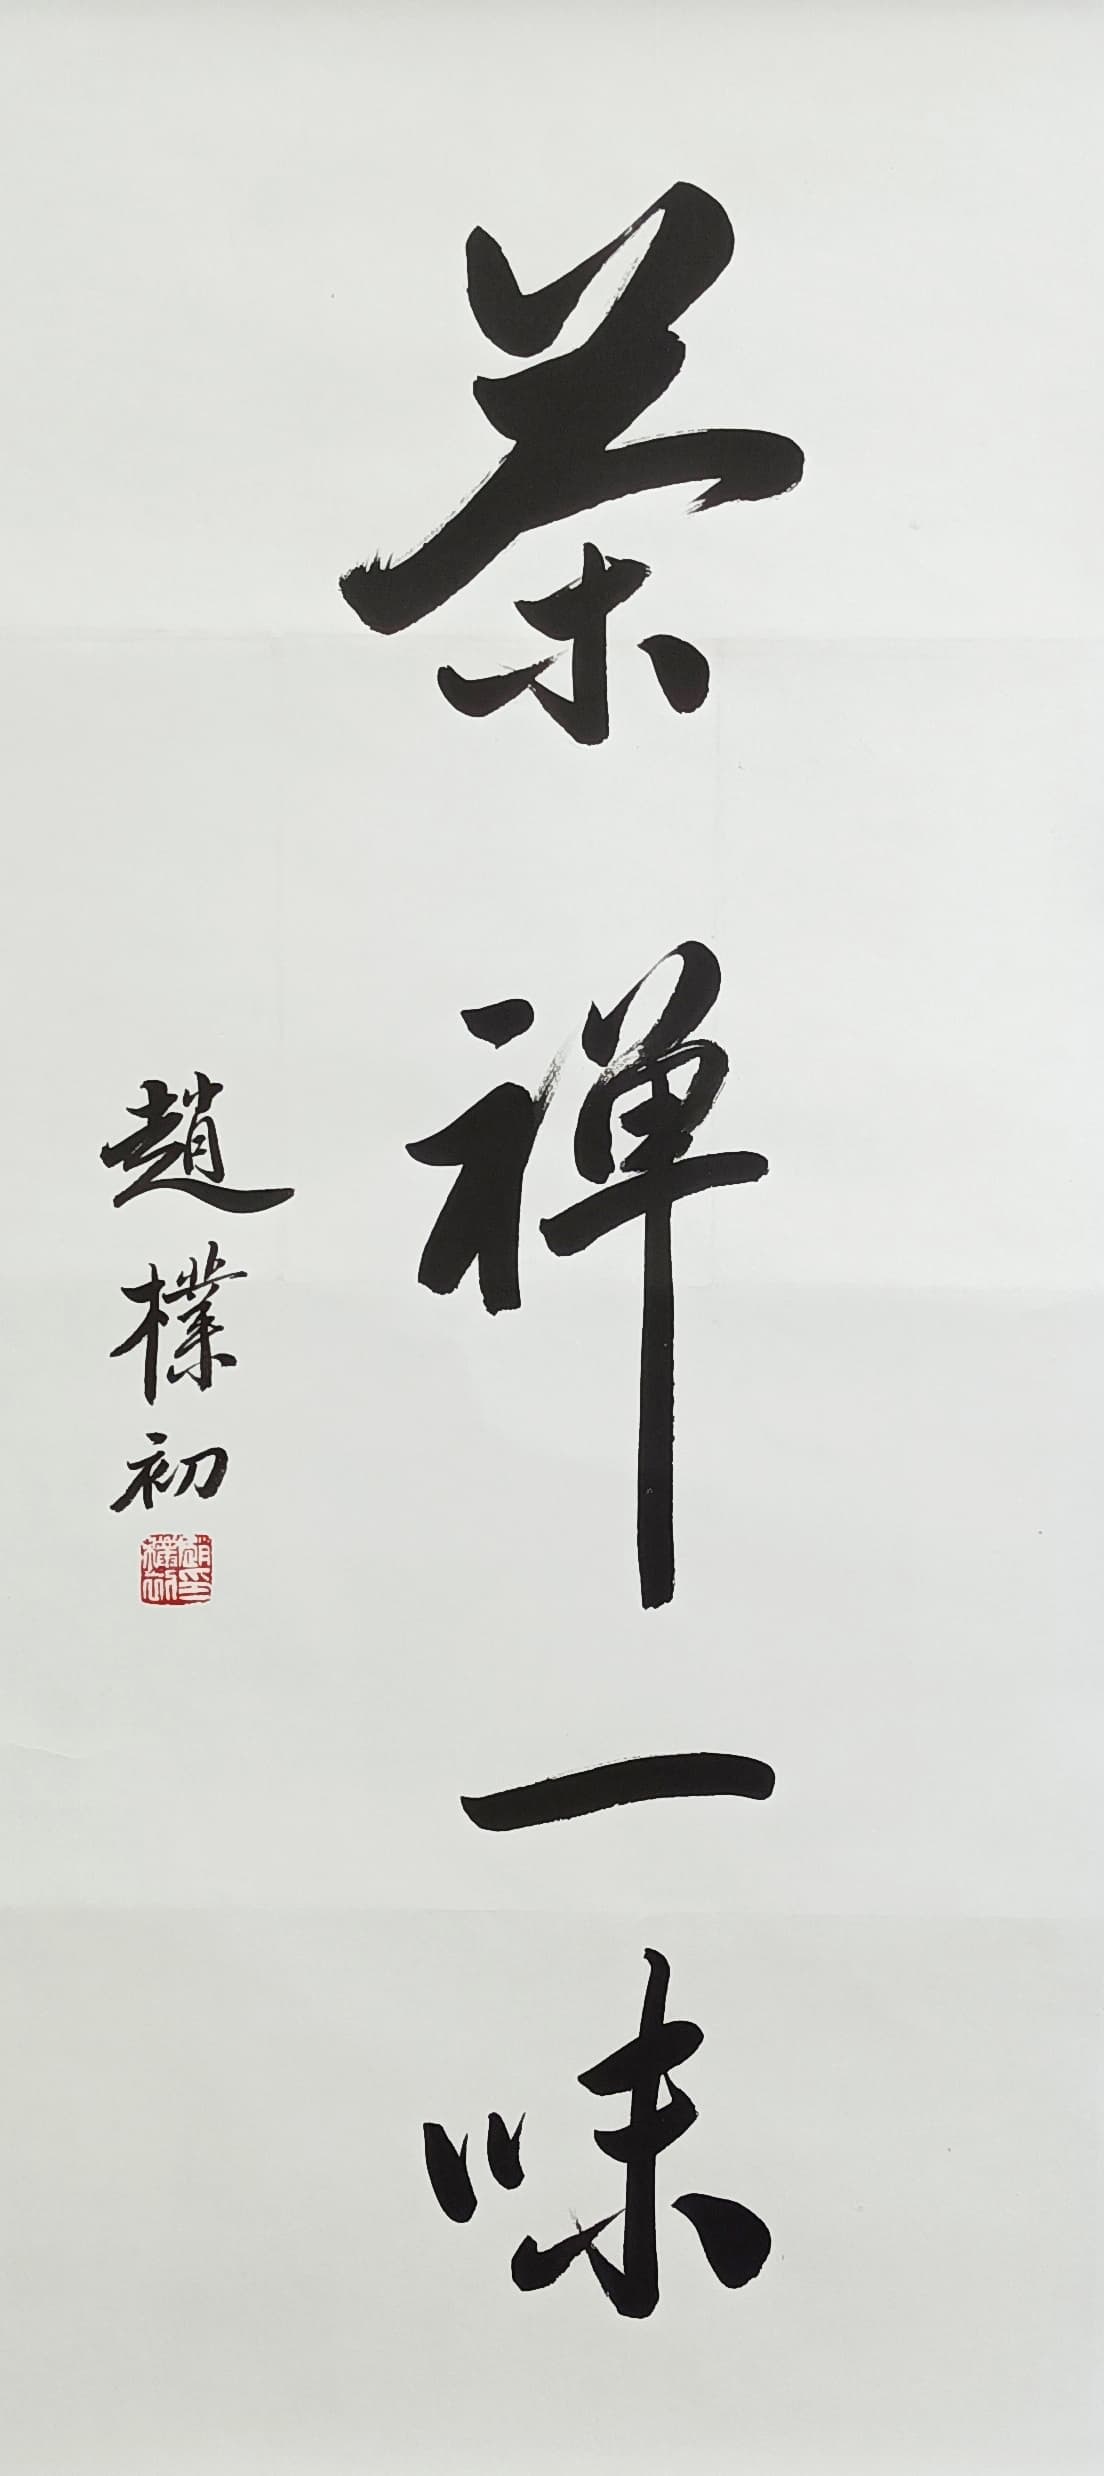 茶禅一味
趙樸初
趙樸初印